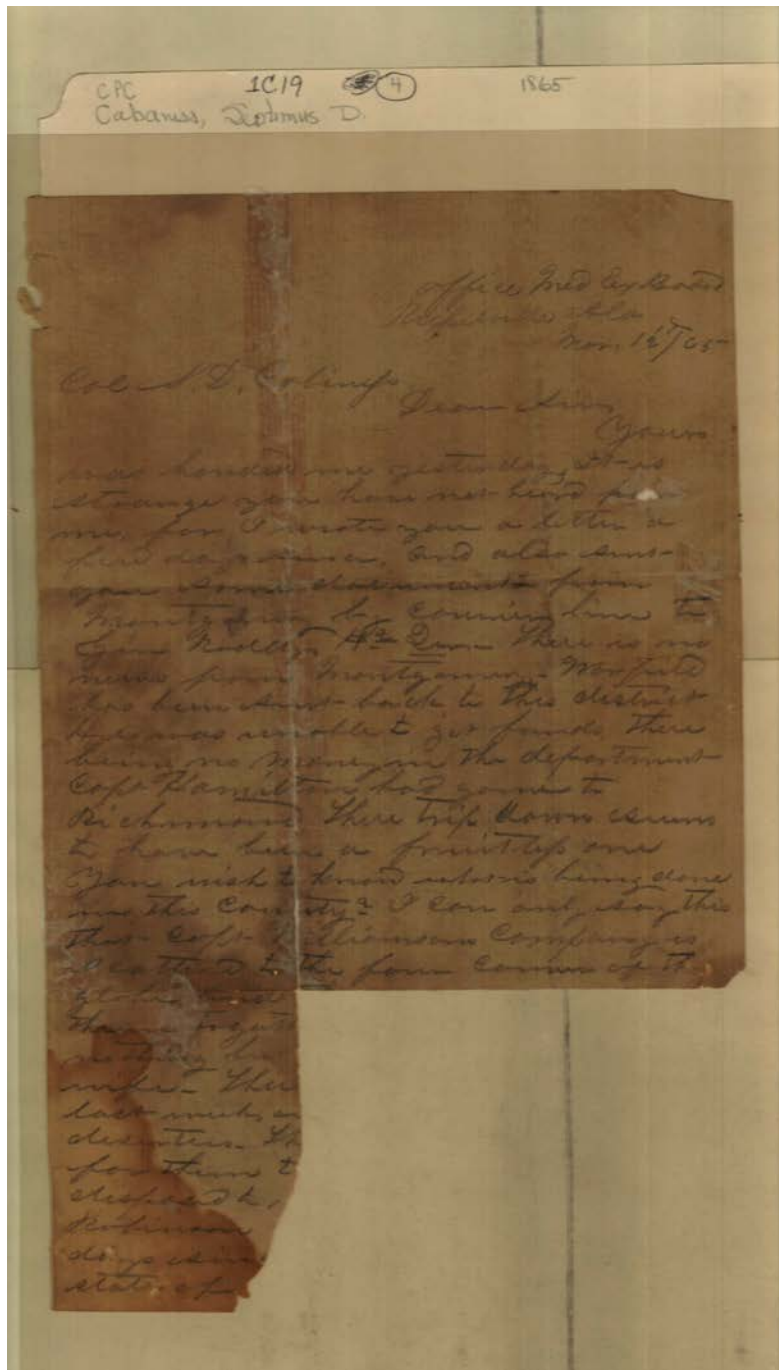 CPC 1C19 4 1865
Cabaniss, Septimus D.
Office Med Ex Board
Ala
12/65
Col. S. D.
Dear Sir,
Yours
was handed me yesterday, It is
strange you have not heard from
me, for, I wrote you a letter a
few days since, and also sent
you some documents from
Montgomery by courier line to
Gen There is no
news from Montgomery.
has been sent back to this district
he was unable to get funds there
being no money in the department
Capt Hamilton had gone to
Richmond There trip down seems
to have been a fruitless one
You wish to know what is being done
in this County? I can only say this
that Capt Company is
to the four corners of the
globe and
them together
nothing
wife. The
last week, an
deserters. Th
for them t
disposed to
Robinson
days sin
state of